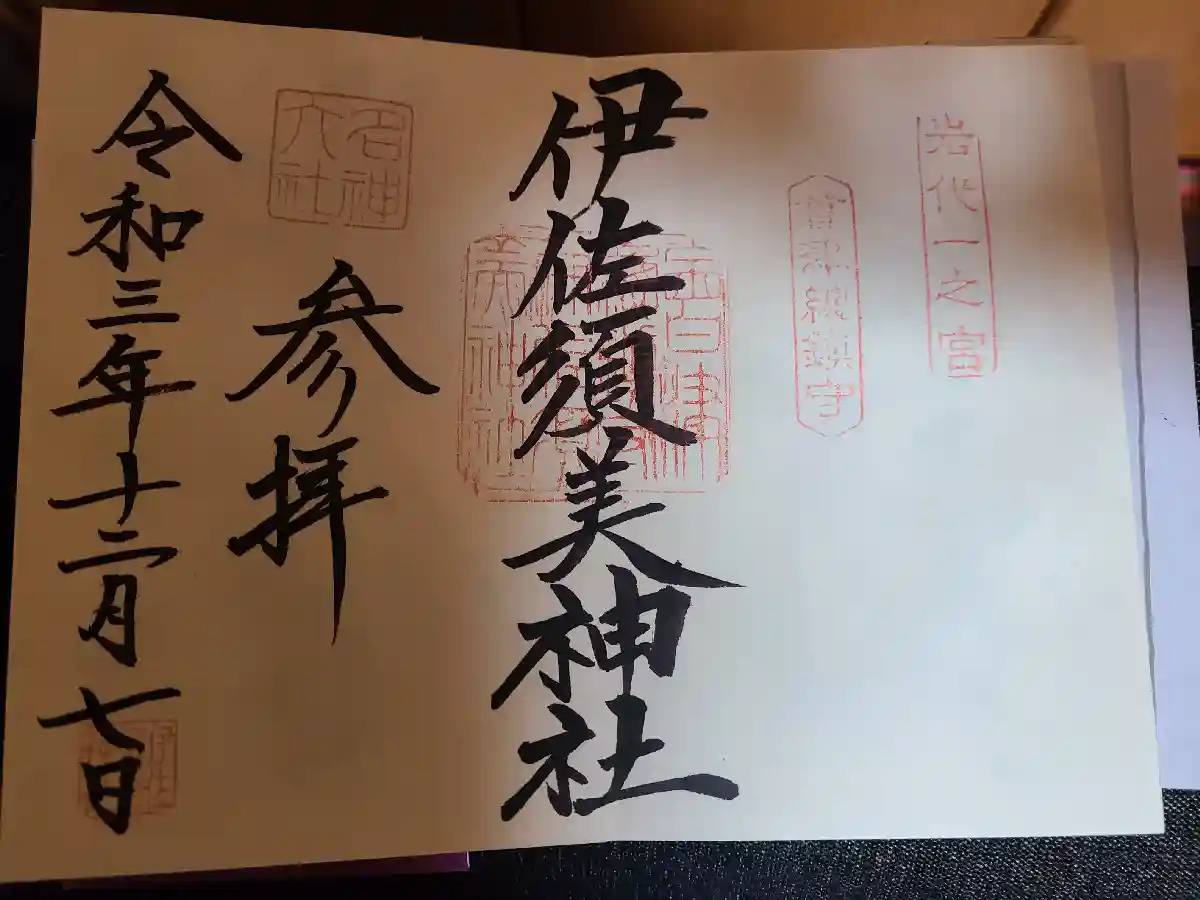 岩代一之宮
會津總鎮守
伊佐須美神社
名神
大社
参拝
令和三年十二月七日